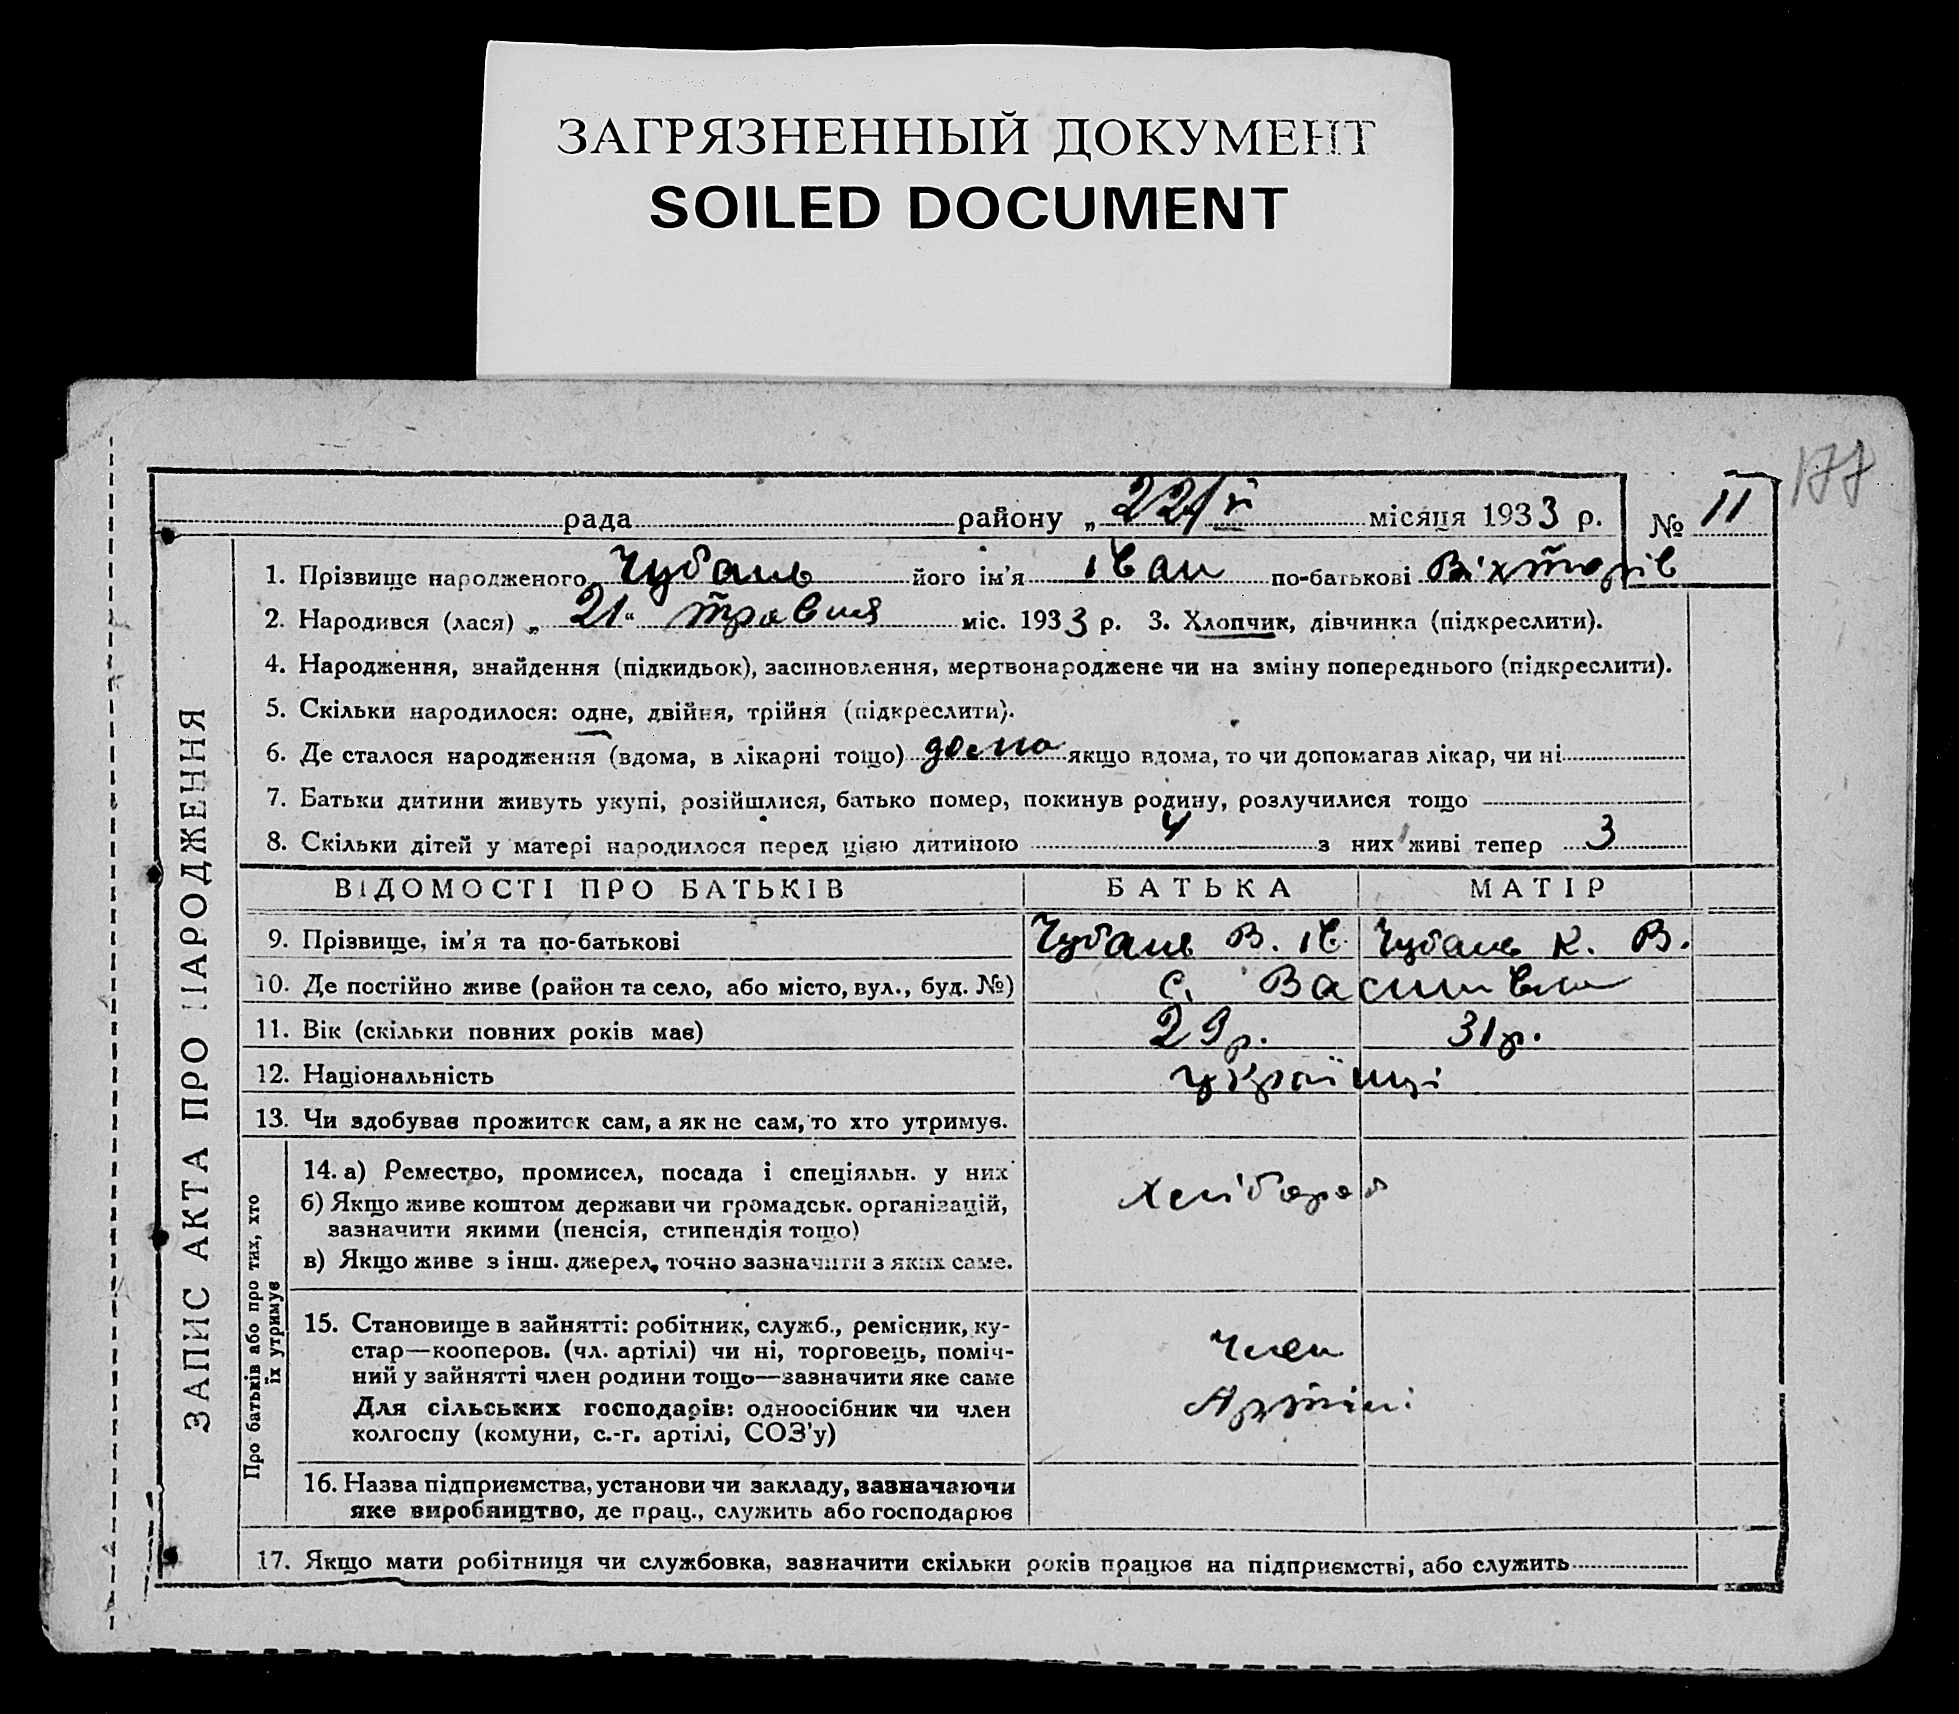 ЗАГРЯЗНЕННЫЙ ДОКУМЕНТ
SOILED DOCUMENT
рада района „22/V місяця 1933 р. № 11
1. Прізвище народженого Чубань його ім'я Іван по-батькові Вікторів
2. Народився (лася) „21“ травня міс. 1933 р. 3. Хлопчик, дівчинка (підкреслити).
4. Народження, знайдення (підкидьок), засиновлення, мертвонароджене чи на зміну попереднього (підкреслити).
5. Скільки народилося: одне, двійня, трійня (підкреслити).
6. Де сталося народження (вдома, в лікарні тощо) дома якщо вдома, то чи допомагав лікар, чи ні
7. Батьки дитини живуть укупі, розійшлися, батько помер, покинув родину, розлучилися тощо
8. Скільки дітей у матері народилося перед цією дитиною 4 з них живі тепер 3
ВІДОМОСТІ ПРО БАТЬКІВ БАТЬКА МАТІР
9. Прізвище, ім'я та по-батькові Чубань В. Ів. Чубань К. В.
10. Де постійно живе (район та село, або місто, вул., буд. №) с.
11. Вік (скільки повних років має) 29 р. 31 р.
12. Національність українці
13. Чи здобував прожиток сам, а як не сам, то хто утримує.
14. а) Ремество, промисел, посада і спеціяльн. у них Хлібороб
б) Якщо живе коштом держави чи громадськ. організацій,
зазначити якими (пенсія, стипендія тощо)
в) Якщо живе з інш. джерел, точно зазначити з яких саме.
15. Становище в зайнятті: робітник, служб., ремісник, ку-
стар—кооперов. (чл. артілі) чи ні, торговець, поміч-
ний у зайнятті член родини тощо—зазначити яке саме
Для сільських господарів: одноосібник чи член
колгоспу (комуни, с.-г. артілі, СОЗ'у)
член
Артілі
16. Назва підприємства, установи чи закладу, зазначаючи
яке виробництво, де прац., служить або господарює
17. Якщо мати робітниця чи службовка, зазначити скільки років працює на підприємстві, або служить
ЗАПИС АКТА ПРО НАРОДЖЕННЯ
Про батьків або про тих, хто
їх утримує